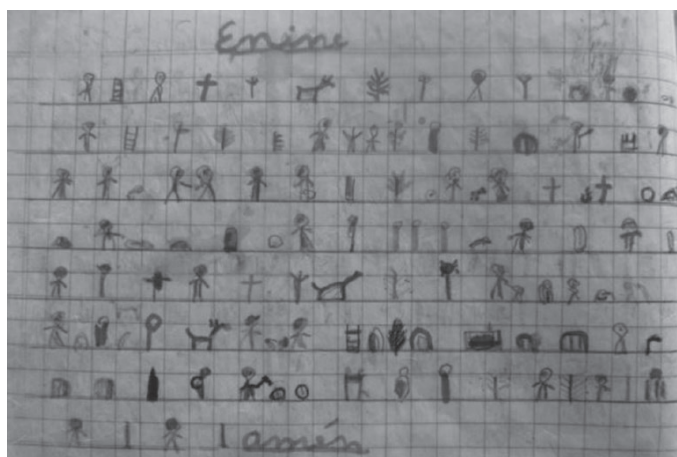 Enine
amén